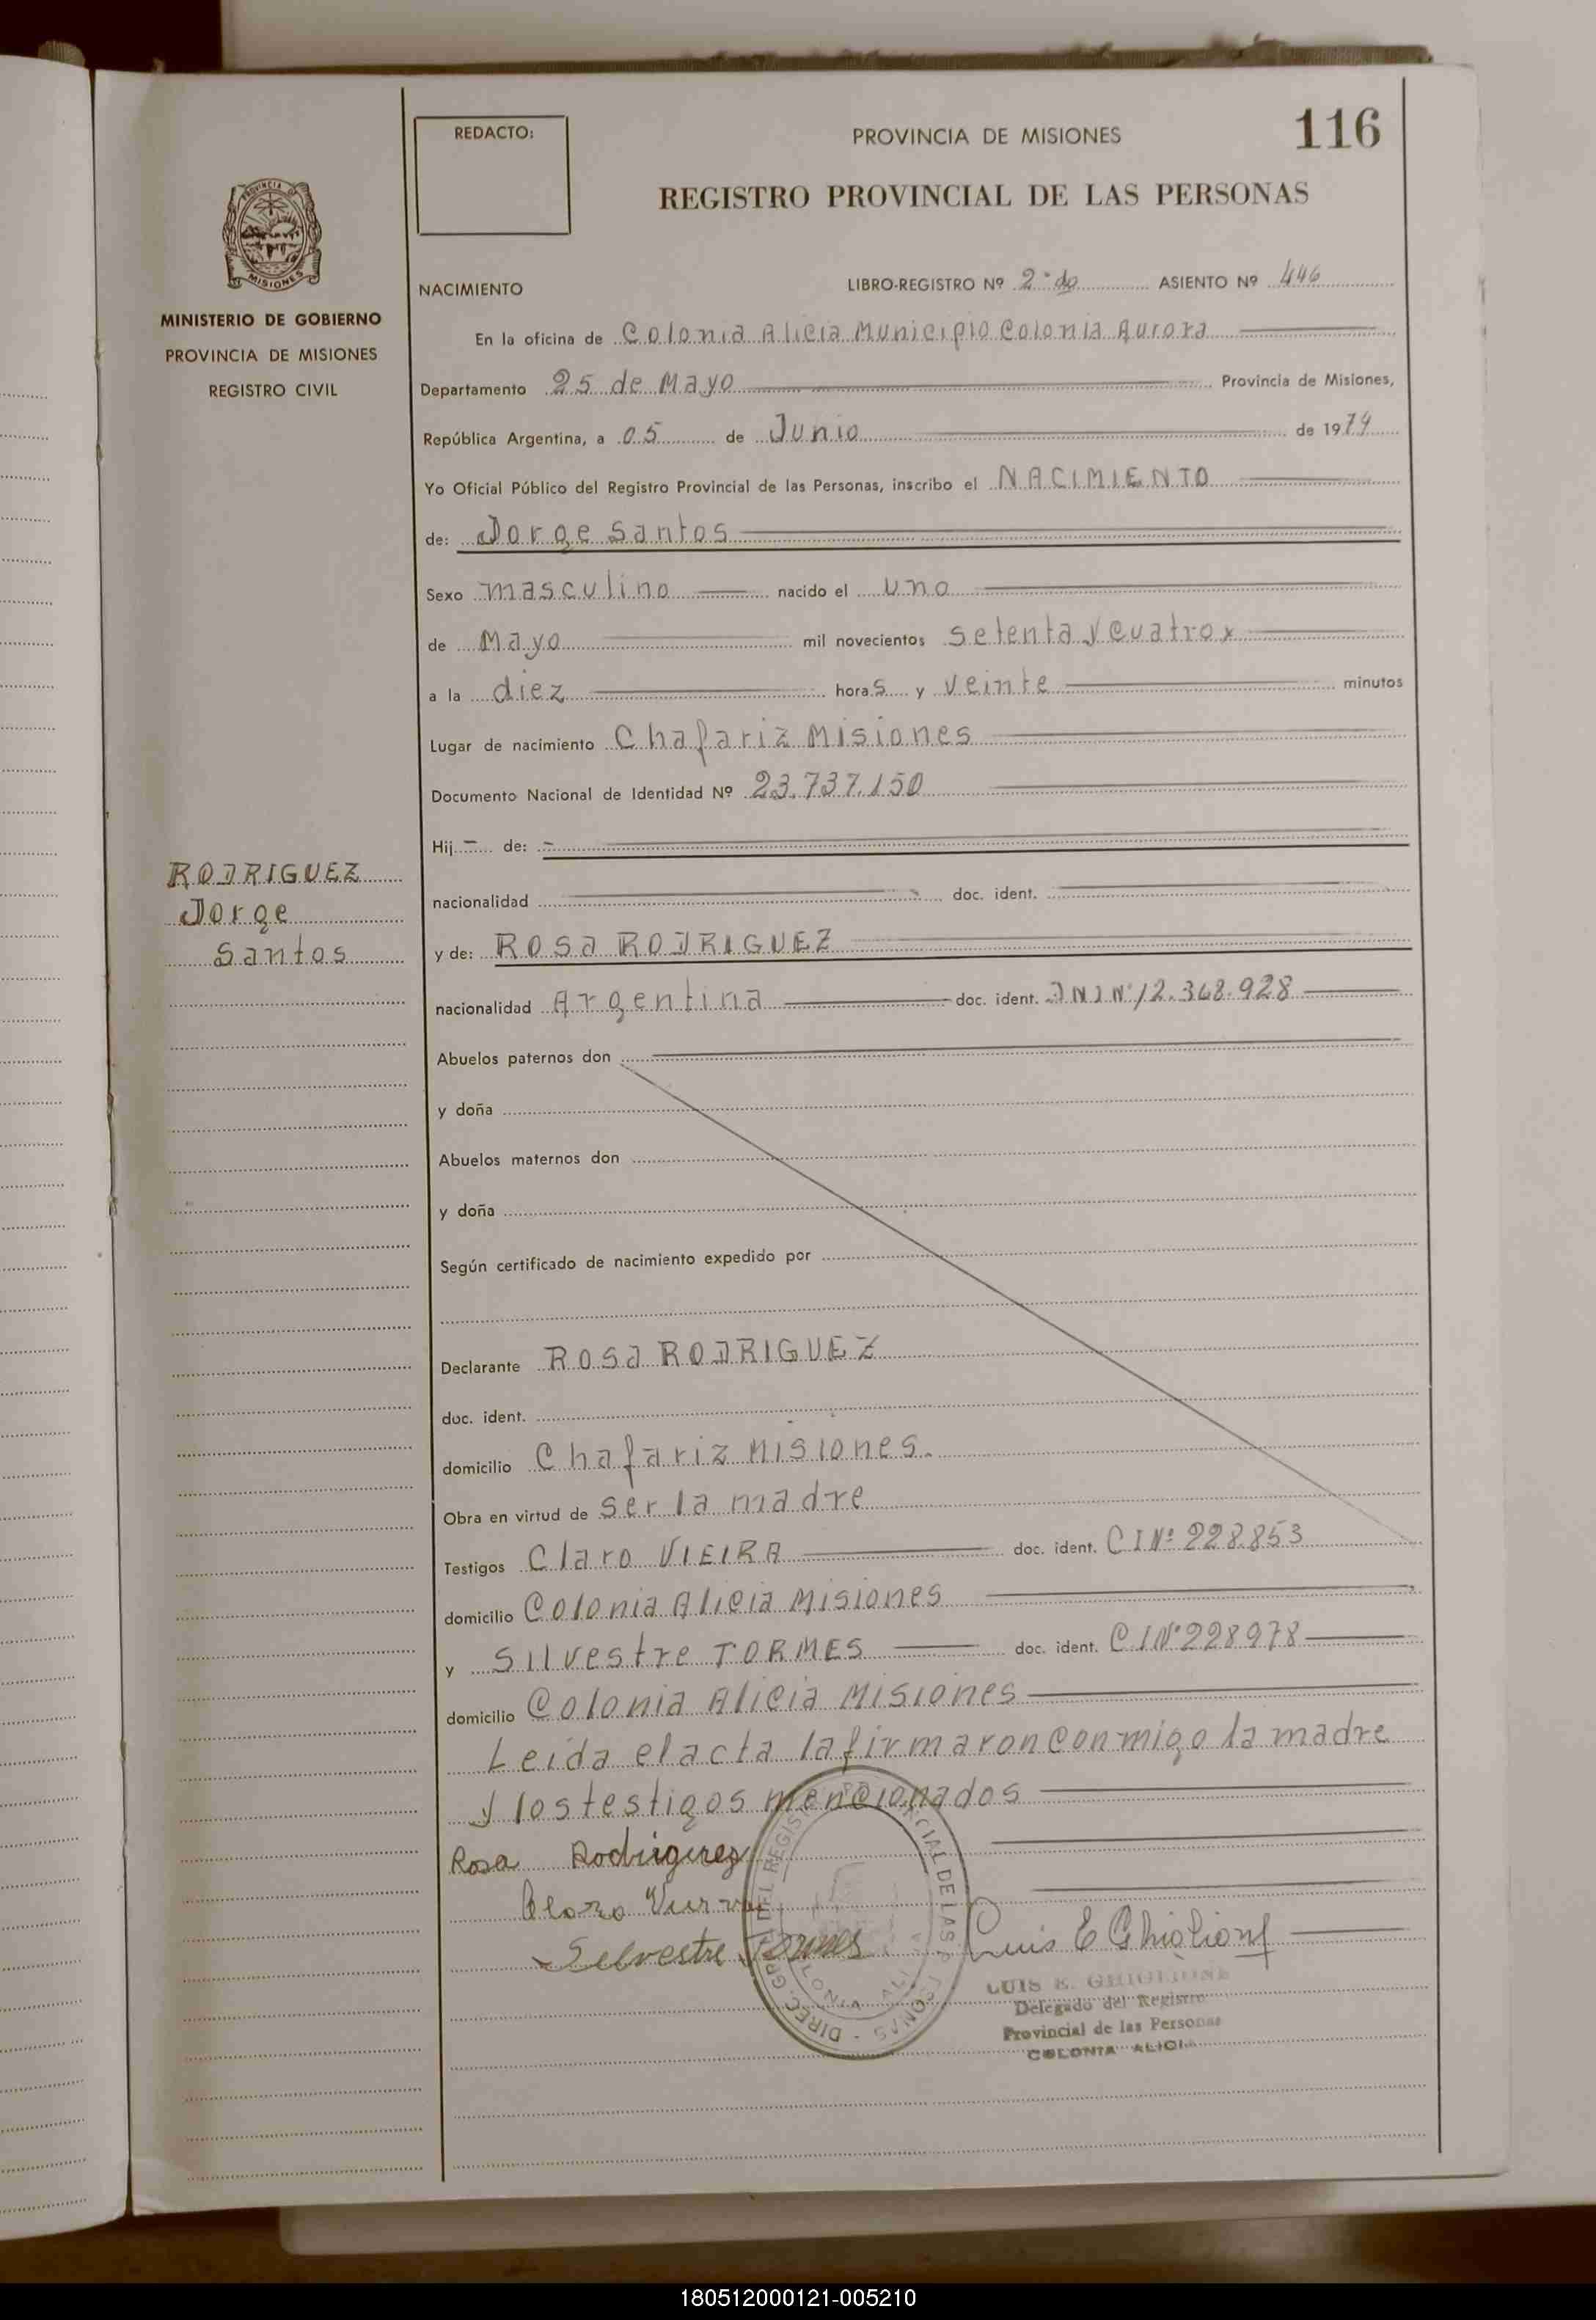 REDACTO:
PROVINCIA DE MISIONES
116
REGISTRO PROVINCIAL DE LAS PERSONAS
PROVINCIA DE MISIONES
MINISTERIO DE GOBIERNO
PROVINCIA DE MISIONES
REGISTRO CIVIL
NACIMIENTO LIBRO-REGISTRO Nº 2º do ASIENTO Nº 446
En la oficina de Colonia Alicia Municipio Colonia Aurora
Departamento 25 de Mayo Provincia de Misiones,
República Argentina, a 05 de Junio de 1974
Yo Oficial Público del Registro Provincial de las Personas, inscribo el NACIMIENTO
de: Jorge Santos
Sexo masculino nacido el uno
de Mayo mil novecientos setenta y cuatro x
a la diez horas y veinte minutos
Lugar de nacimiento Chafariz Misiones
Documento Nacional de Identidad Nº 23.737.150
Hij - de: -
RODRIGUEZ
Jorge
Santos
nacionalidad doc. ident.
y de: Rosa RODRIGUEZ
nacionalidad Argentina doc. ident. DNI Nº 12.368.928
Abuelos paternos don
y doña
Abuelos maternos don
y doña
Según certificado de nacimiento expedido por
Declarante Rosa RODRIGUEZ
doc. ident.
domicilio Chafariz Misiones.
Obra en virtud de ser la madre
Testigos Claro VIEIRA doc. ident. CI Nº 228.853
domicilio Colonia Alicia Misiones
y Silvestre TORMES doc. ident. C.I Nº 228978
domicilio Colonia Alicia Misiones
Leida el acta la firmaron conmigo la madre
y los testigos mencionados
Rosa Rodriguez
Silvestre Tormes
Luis E Ghiglione
LUIS E. GHIGLIONE
Delegado del Registro
Provincial de las Personas
COLONIA ALICIA
180512000121-005210